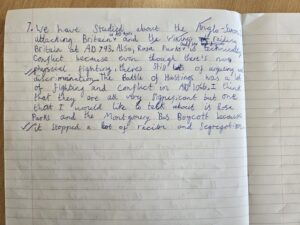 7. We have studied about the Anglo-Saxons
attacking Britain and the Vikings
Britain at AD 793. Also, Rosa Parks is technically
conflict because even though there's no
physical fighting, theres still lots of arguing and
discrimination. The Battle of Hastings was a lot
of fighting and conflict in AD 1066. I think
that they are all very significant but one
that I would like to talk about is Rosa
Parks and the Montgomery Bus Boycott because
it stopped a lot of racism and segregation.